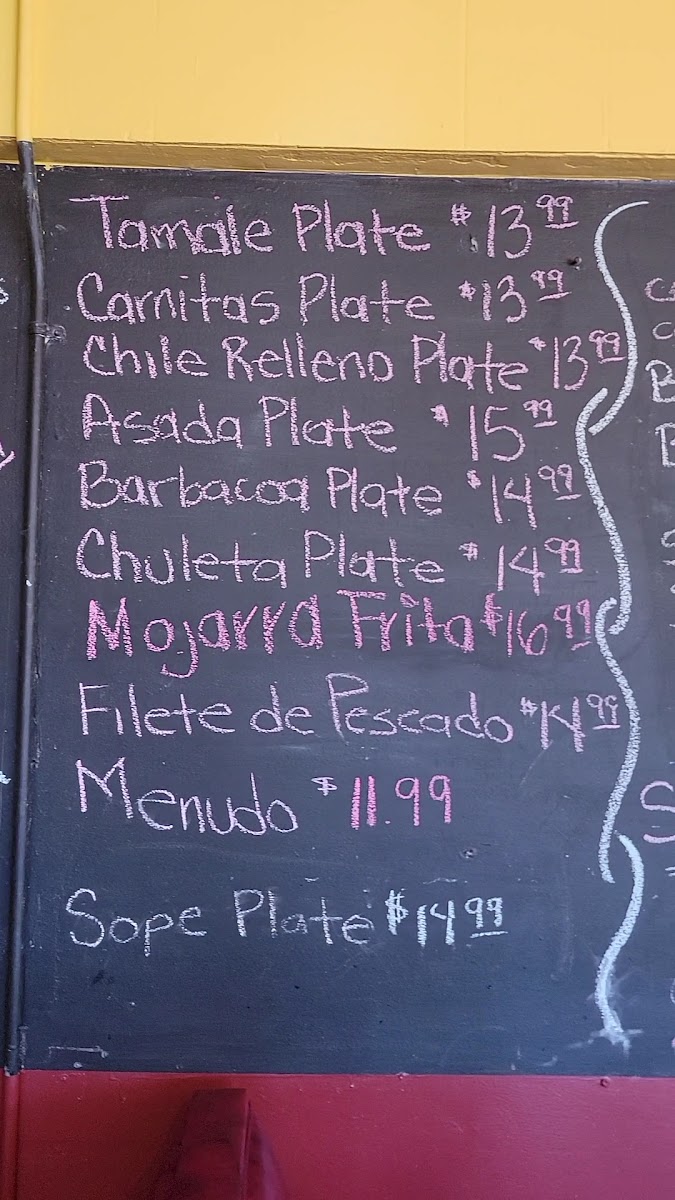 Tamale Plate $13.99
Carnitas Plate $13.99
Chile Relleno Plate $13.99
Asada Plate $15.99
Barbacoa Plate $14.99
Chuleta Plate $14.99
Mojarra Frita $16.99
Filete de Pescado $14.99
Menudo $11.99
Sope Plate $14.99